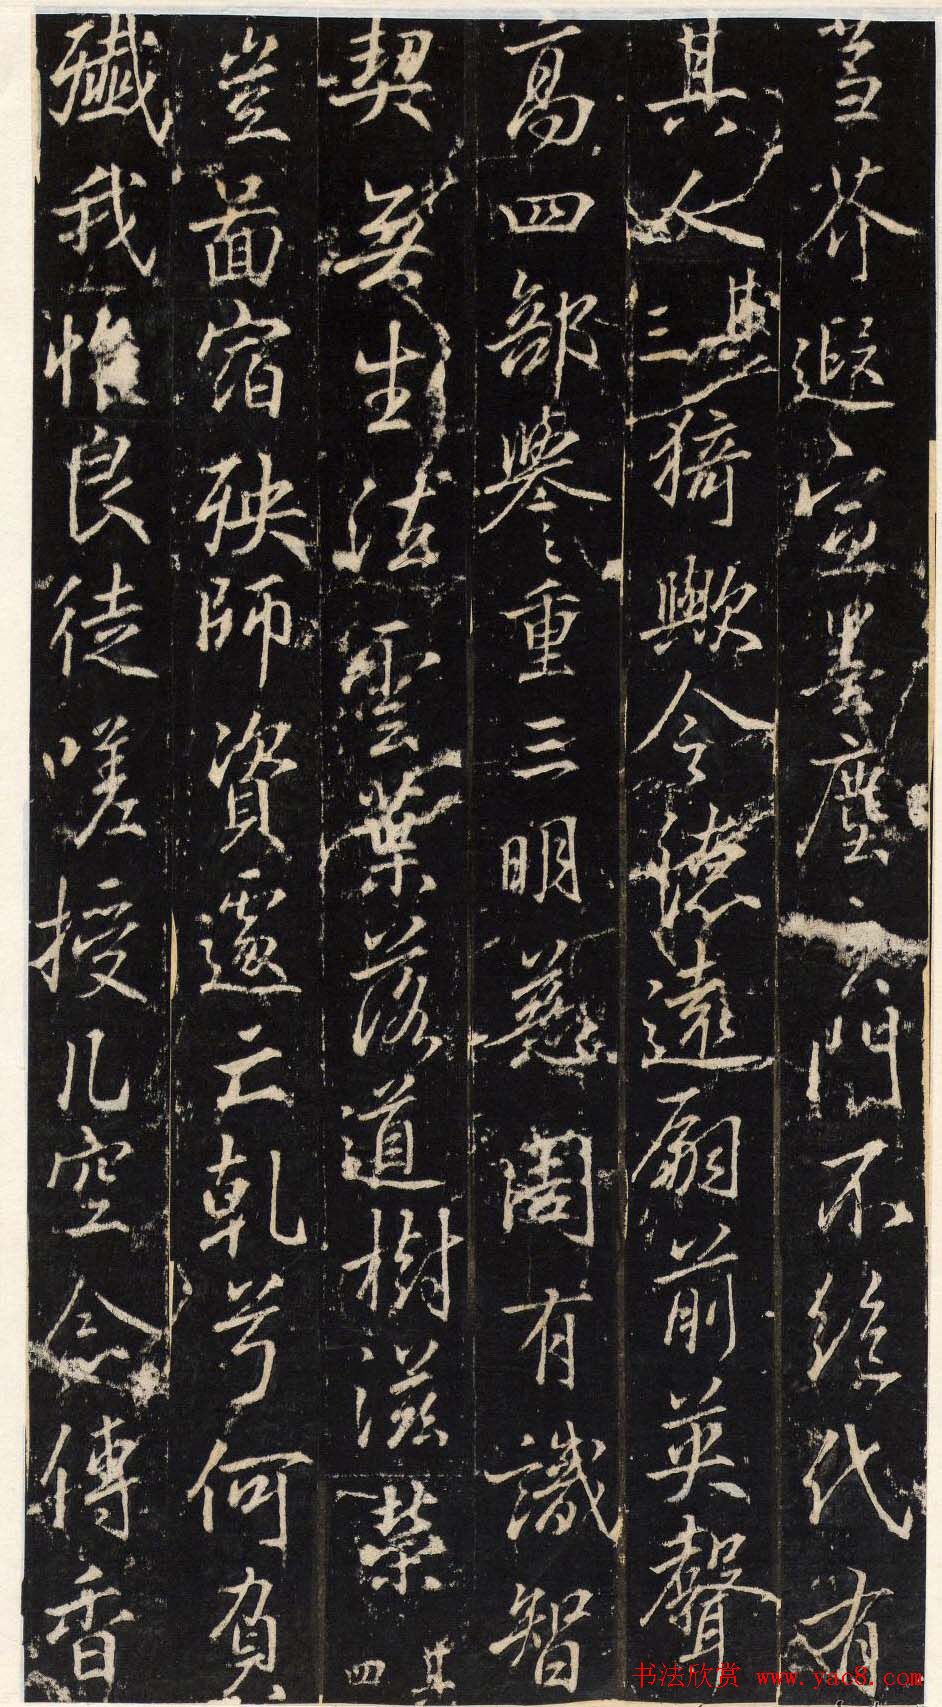 芥遐宣墨塵門不絶代有
其人其三猗歟令德遠嗣前英聲
高四部譽重三明慈周有識智
契無生法雲葉落道樹滋榮其四
豈啚宿殃師資遽亡乾兮何負
殲我惟良徒嗟授几空念傳香
书法欣赏 www.yac8.com